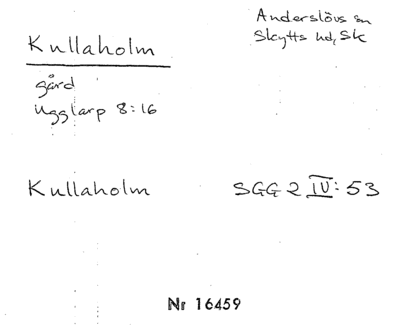 Kullaholm
Anderslövs sn
Skytts hd, Sk
gård
Ugglarp 8:16
Kullaholm SGG 2 IV: 53
Nr 16459